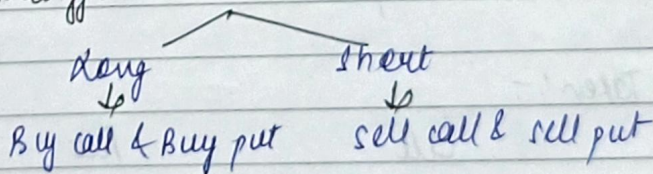 Long Short
Buy call & Buy put sell call & sell put